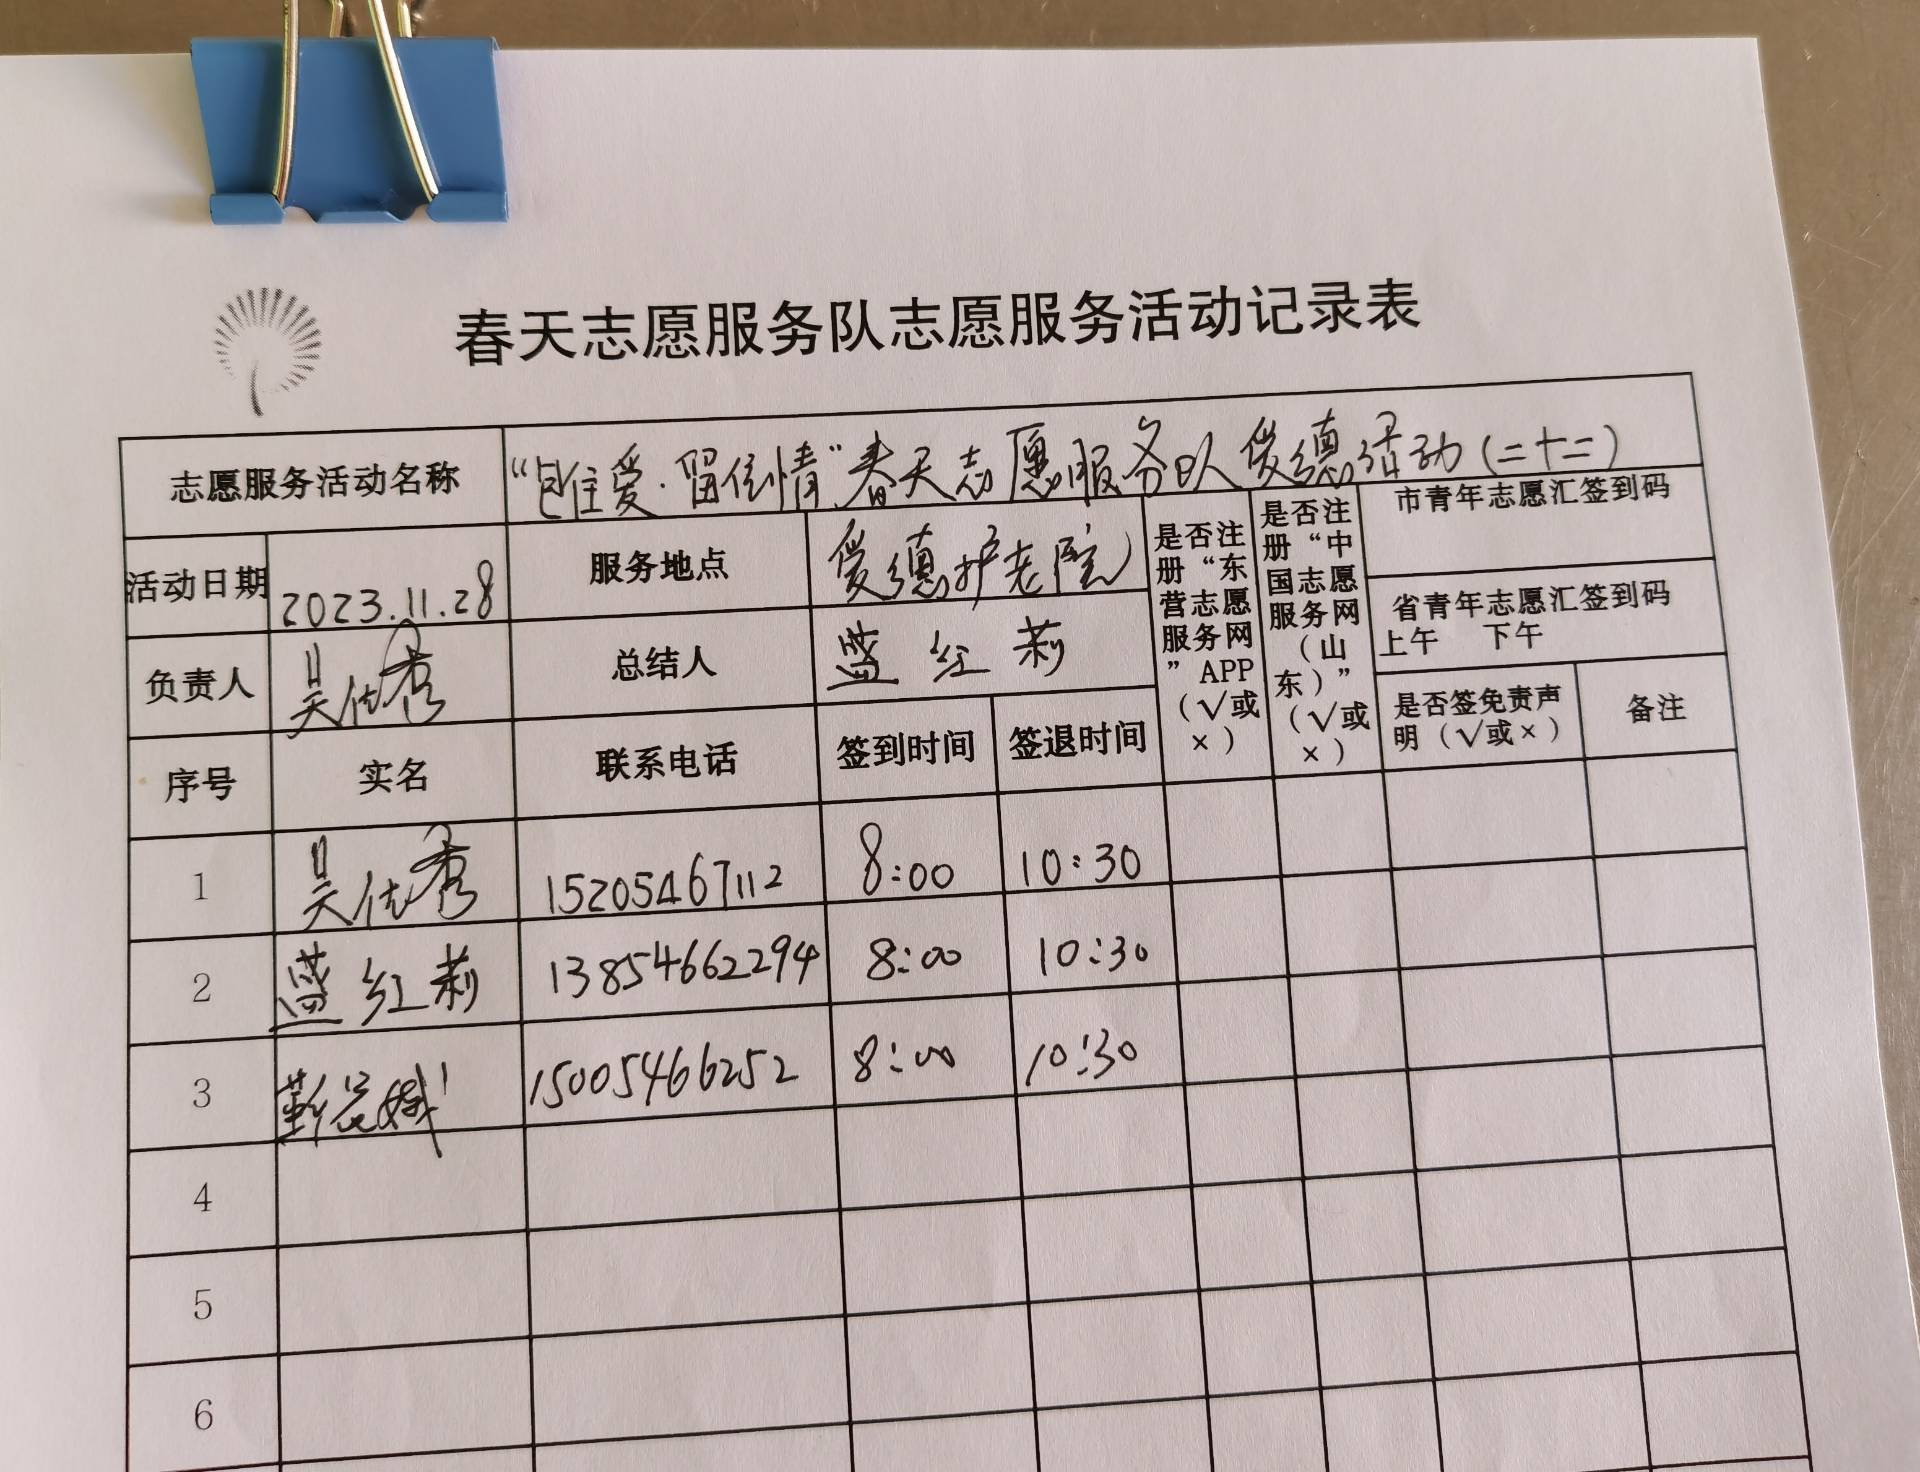 春天志愿服务队志愿服务活动记录表
志愿服务活动名称 “记住爱·留住情”春天志愿服务队爱德活动(二十二)
活动日期 2023.11.28 服务地点 爱德护老院
负责人 吴优秀 总结人 蓝红莉
是否注册“东营志愿服务网”APP(√或×)
是否注册“中国志愿服务网(山东)”(√或×)
市青年志愿汇签到码
省青年志愿汇签到码
上午 下午
是否签免责声明(√或×) 备注
序号 实名 联系电话 签到时间 签退时间
1 吴优秀 15205467112 8:00 10:30
2 蓝红莉 13854662294 8:00 10:30
3 15005466252 8:00 10:30
4
5
6